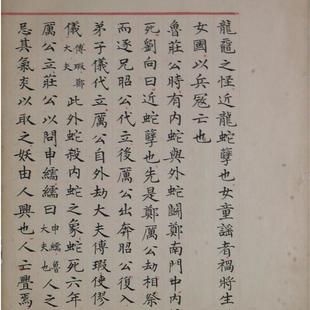 龍鼋之怪近龍蛇孽也女童謠者禍將生
女國以兵冦亡也
魯莊公時有内蛇與外蛇鬭鄭南門中内
死劉向曰近蛇孽也先是鄭厲公劫相祭
而逐兄昭公代立後厲公出奔昭公復入
弟子儀代立厲公自外劫大夫傅瑕使僇
儀傅瑕鄭大夫此外蛇殺内蛇之象蛇死六年
厲公立莊公以問申繻繻曰申繻魯大夫也人之
忌其氣炎以取之妖由人興也人亡舋焉